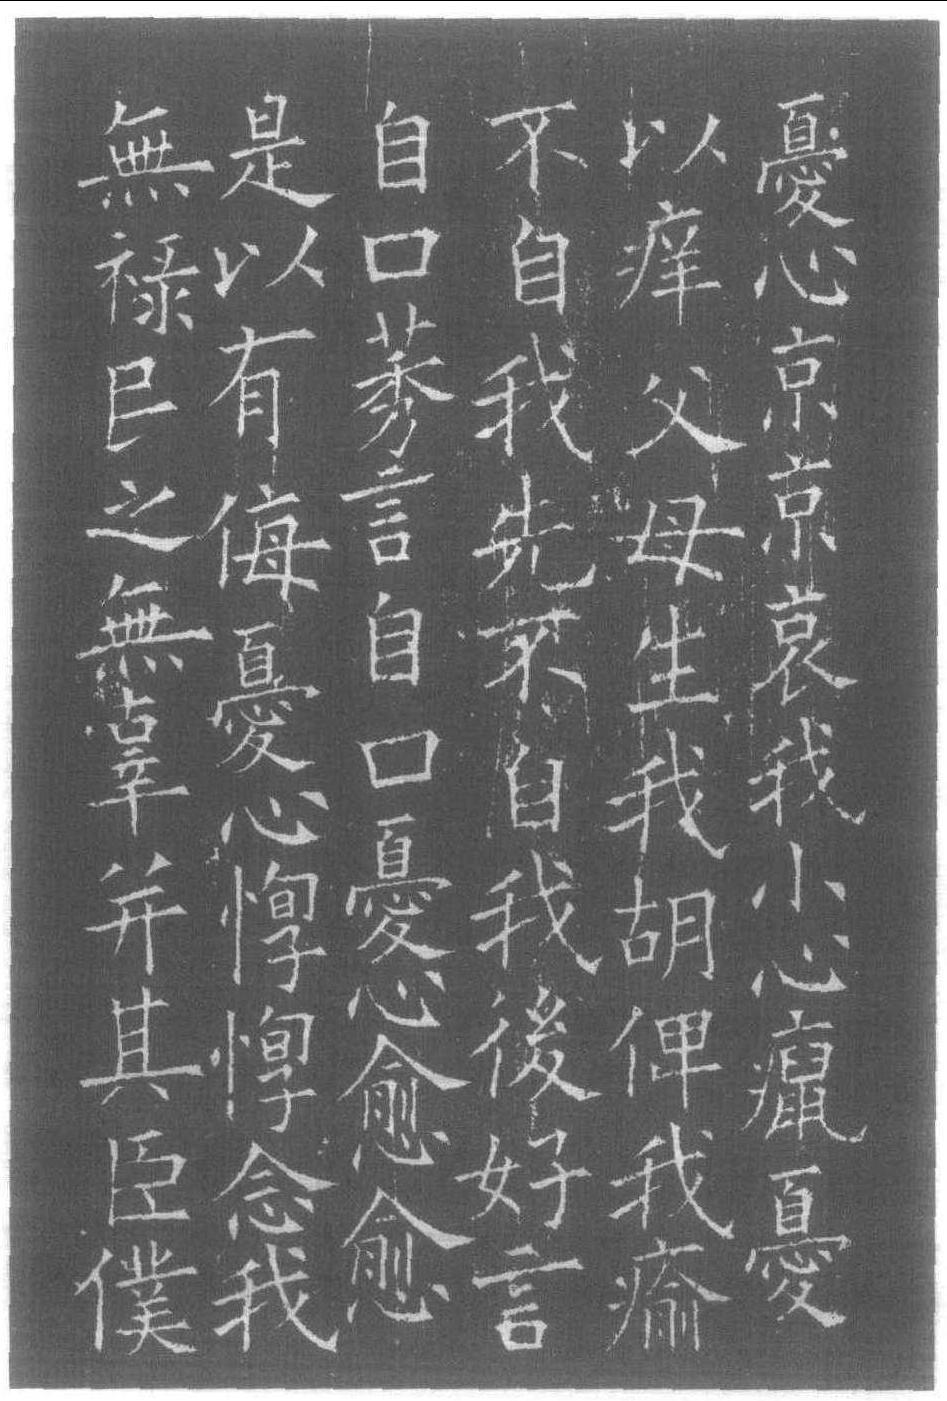 憂心京京哀我小心癙憂
以痒父母生我胡俾我瘉
不自我先不自我後好言
自口莠言自口憂心愈愈
是以有侮憂心惸惸念我
無祿民之無辜并其臣僕